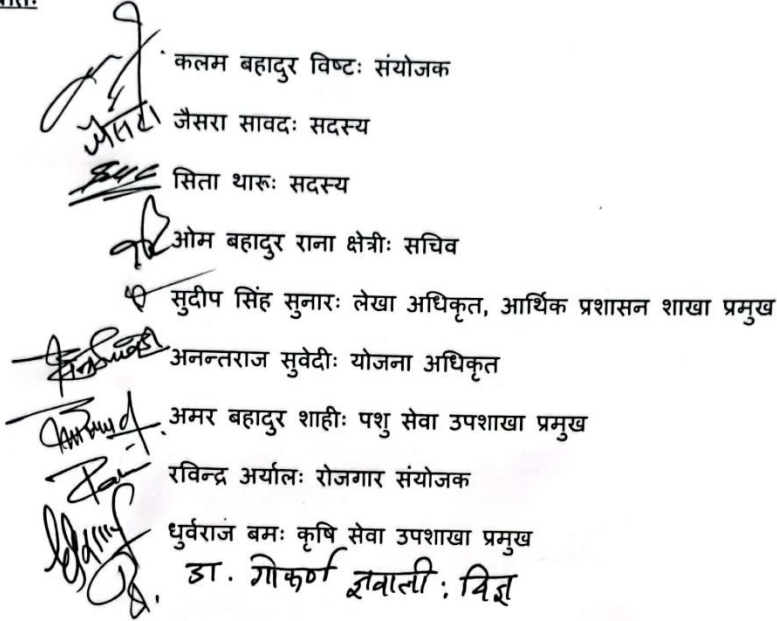 कलम बहादुर विष्टः संयोजक
जैसरा जैसरा सावदः सदस्य
सिता थारूः सदस्य
ओम बहादुर राना क्षेत्रीः सचिव
सुदीप सिंह सुनारः लेखा अधिकृत, आर्थिक प्रशासन शाखा प्रमुख
अनन्तराज सुवेदीः योजना अधिकृत
अमर बहादुर शाहीः पशु सेवा उपशाखा प्रमुख
रविन्द्र अर्यालः रोजगार संयोजक
धुर्वराज बमः कृषि सेवा उपशाखा प्रमुख
डा. गोकर्ण ज्ञवाली : विज्ञ